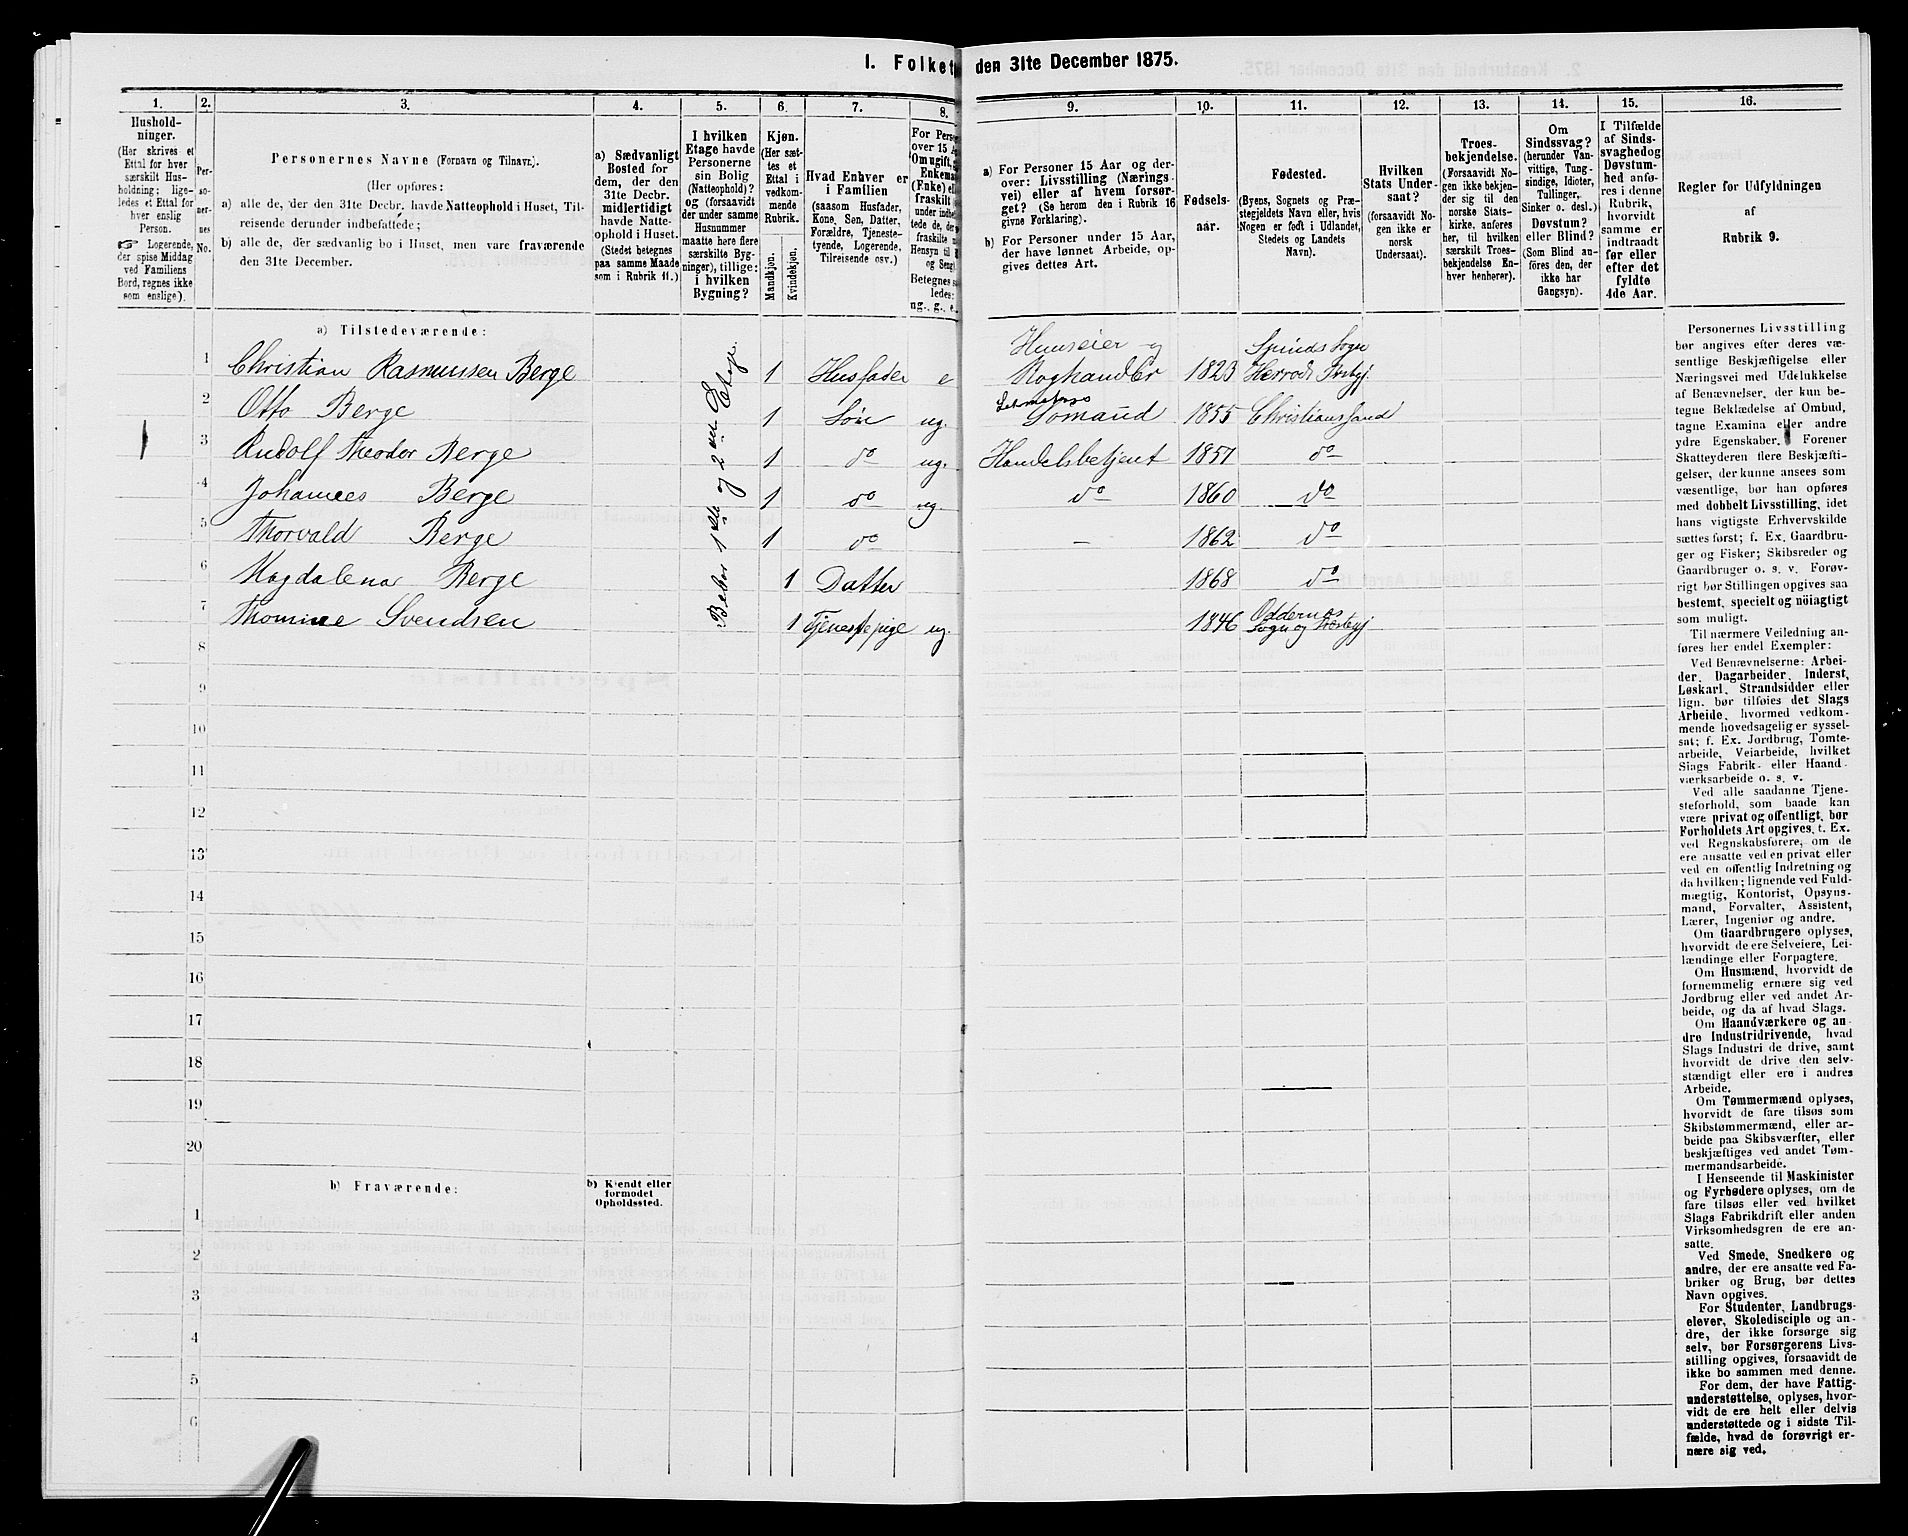 I. Folket
den 31te December 1875.
1.
2.
3.
4.
5.
6.
7.
8.
9.
10.
11.
12.
13.
14.
15.
16.
Hushold-
ninger.
(Her skrives et
Ettal for hver
særskilt Hus-
holdning; lige-
ledes et Ettal for
hver enslig
Person.
☞ Logerende,
der spise Middag
ved Familiens
Bord, regnes ikke
som enslige).
Per-
so-
ner-
nes
No.
Personernes Navne (Fornavn og Tilnavn).
(Her opføres:
a) alle de, der den 31te Decbr. havde Natteophold i Huset, Til-
reisende derunder indbefattede;
b) alle de, der sædvanlig bo i Huset, men vare fraværende
den 31te December.
a) Sædvanligt
Bosted for
dem, der den
31te Decbr.
midlertidigt
havde Natte-
ophold i Huset.
(Stedet betegnes
paa samme Maade
som i Rubrik 11.)
I hvilken
Etage havde
Personerne
sin Bolig
(Natteophold)?
og (forsaavidt
der under samme
Husnummer
maatte høre flere
særskilte Byg-
ninger), tillige:
i hvilken
Bygning?
Kjøn.
(Her sæt-
tes et
Ettal i
vedkom-
mende
Rubrik.
Mandkjøn.
Kvindekjøn.
Hvad Enhver er
i Familien
(saasom Husfader,
Kone, Søn, Datter,
Forældre, Tjeneste-
tyende, Logerende,
Tilreisende osv.)
For Person
over 15 A
Om ugift,
Enkema
(Enke) el
fraskilt
under indbe
tede de, de
fraskilte
Hensyn til
og Seng
Betegnes s
ledes:
ug., g., e.
a) For Personer 15 Aar og der-
over: Livsstilling (Nærings-
vei) eller af hvem forsør-
get? (Se herom den i Rubrik 16
givne Forklaring).
b) For Personer under 15 Aar,
der have lønnet Arbeide, op-
gives dettes Art.
Fødsels-
aar.
Fødested.
(Byens, Sognets og Præ-
stegjeldets Navn eller, hvis
Nogen er født i Udlandet,
Stedets og Landets
Navn).
Hvilken
Stats Under-
saat?
(forsaavidt No-
gen ikke er
norsk
Undersaat).
Troes-
bekjendelse.
(Forsaavidt No-
gen ikke bekjen-
der sig til den
norske Stats-
kirke, anføres
her, til hvilken
særskilt Troes-
bekjendelse En-
hver henhører).
Om
Sindssvag?
(herunder Van-
vittige, Tung-
sindige, Idioter,
Tullinger,
Sinker o. desl.)
Døvstum?
eller Blind?
(Som Blind an-
føres den, der
ikke har
Gangsyn).
I Tilfælde
af Sinds-
svaghed og
Døvstum-
hed anfø-
res i denne
Rubrik,
hvorvidt
samme er
indtraadt
før eller
efter det
fyldte
4de Aar.
Regler for Udfyldningen
af
Rubrik 9.
a) Tilstedeværende:
Bebor 1ste og 2den Etage.
1 Christian Rasmussen Berge 1 Husfader e Huuseier og Koghandler 1823 Spinds Sogn Herrods Prstgj.
2 Otto Berge 1 Søn ug. Sømand 1855 Christianssand
3 Rudolf Theodor Berge 1 do ug. Handelsbetjent 1857 do
4 Johannes Berge 1 do ug. do 1860 do
5 Thorvald Berge 1 do – 1862 do
6 Magdalena Berge 1 Datter 1868 do
7 Thomine Svendsen 1 Tjenestepige ug. 1846 Oddernes Sogn og Præstegj
8
9
10
11
12
13
14
15
16
17
18
19
20
b) Fraværende:
b) Kjendt eller
formodet
Opholdssted.
1
2
3
4
5
6
Personernes Livsstilling
bør angives efter deres væ-
sentlige Beskjæftigelse eller
Næringsvei med Udelukkelse
af Benævnelser, der kun be-
tegne Beklædelse af Ombud,
tagne Examina eller andre
ydre Egenskaber. Forener
Skatteyderen flere Beskjæfti-
gelser, der kunne ansees som
væsentlige, bør han opføres
med dobbelt Livsstilling, idet
hans vigtigste Erhvervskilde
sættes først; f. Ex. Gaardbru-
ger og Fisker; Skibsreder og
Gaardbruger o. s. v. Forøv-
rigt bør Stillingen opgives saa
bestemt, specielt og nöiagtigt
som muligt.
Til nærmere Veiledning an-
føres her endel Exempler:
Ved Benævnelserne: Arbei-
der, Dagarbeider, Inderst,
Løskarl, Strandsidder eller
lign. bør tilføies det Slags
Arbeide, hvormed vedkom-
mende hovedsagelig er syssel-
sat; f. Ex. Jordbrug, Tomte-
arbeide, Veiarbeide, hvilket
Slags Fabrik- eller Haand-
værksarbeide o. s. v.
Ved alle saadanne Tjene-
steforhold, som baade kan
være privat og offentligt, bør
Forholdets Art opgives, t. Ex.
ved Regnskabsførere, om de
ere ansatte ved en privat eller
ved en offentlig Indretning og
da hvilken; lignende ved Fuld-
mægtig, Kontorist, Opsyns-
mand, Forvalter, Assistent,
Lærer, Ingeniør og andre.
Om Gaardbrugere oplyses,
hvorvidt de ere Selveiere, Lei-
lændinge eller Forpagtere.
Om Husmænd, hvorvidt de
fornemmelig ernære sig ved
Jordbrug eller ved andet Ar-
beide, og da af hvad Slags.
Om Haandværkere og an-
dre Industridrivende, hvad
Slags Industri de drive, samt
hvorvidt de drive den selv-
stændigt eller ere i andres
Arbeide.
Om Tømmermænd oplyses,
hvorvidt de fare tilsøs som
Skibstømmermænd, eller ar-
beide paa Skibsværfter, eller
beskjæftiges ved andet Tøm-
mermandsarbeide.
I Henseende til Maskinister
og Fyrbødere oplyses, om de
fare tilsøs eller ved hvilket
Slags Fabrikdrift eller anden
Virksomhedsgren de ere an-
satte.
Ved Smede, Snedkere og
andre, der ere ansatte ved Fa-
briker og Brug, bør dettes
Navn opgives.
For Studenter, Landbrugs-
elever, Skoledisciple og an-
dre, der ikke forsørge sig
selv, bør Forsørgerens Livs-
stilling opgives, forsaavidt de
ikke bo sammen med denne.
For dem, der have Fattig-
understøttelse, oplyses, hvor-
vidt de ere helt eller delvis
understøttede og i sidste Til-
fælde, hvad de forøvrigt er-
nære sig ved.